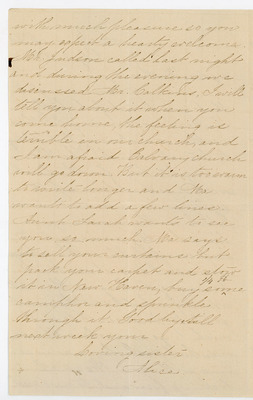 with much pleasure so you
may expect a hearty welcome.
Mr. Judson called last night
and during the evening we
discussed Mr. Collins, I will
tell you about it when you
come home, the feeling is
terrible in our church, and
I am afraid Calvary church
will go down. But it is too warm
to write longer and Me
wants to add a few lines.
Aunt Sarah wants to see
you so much. Me says
to sell your curtains but
pack your carpet and stow
it in New Haven, buy some
camphor and sprinkle
through it. Good bye till
next week your
loving sister